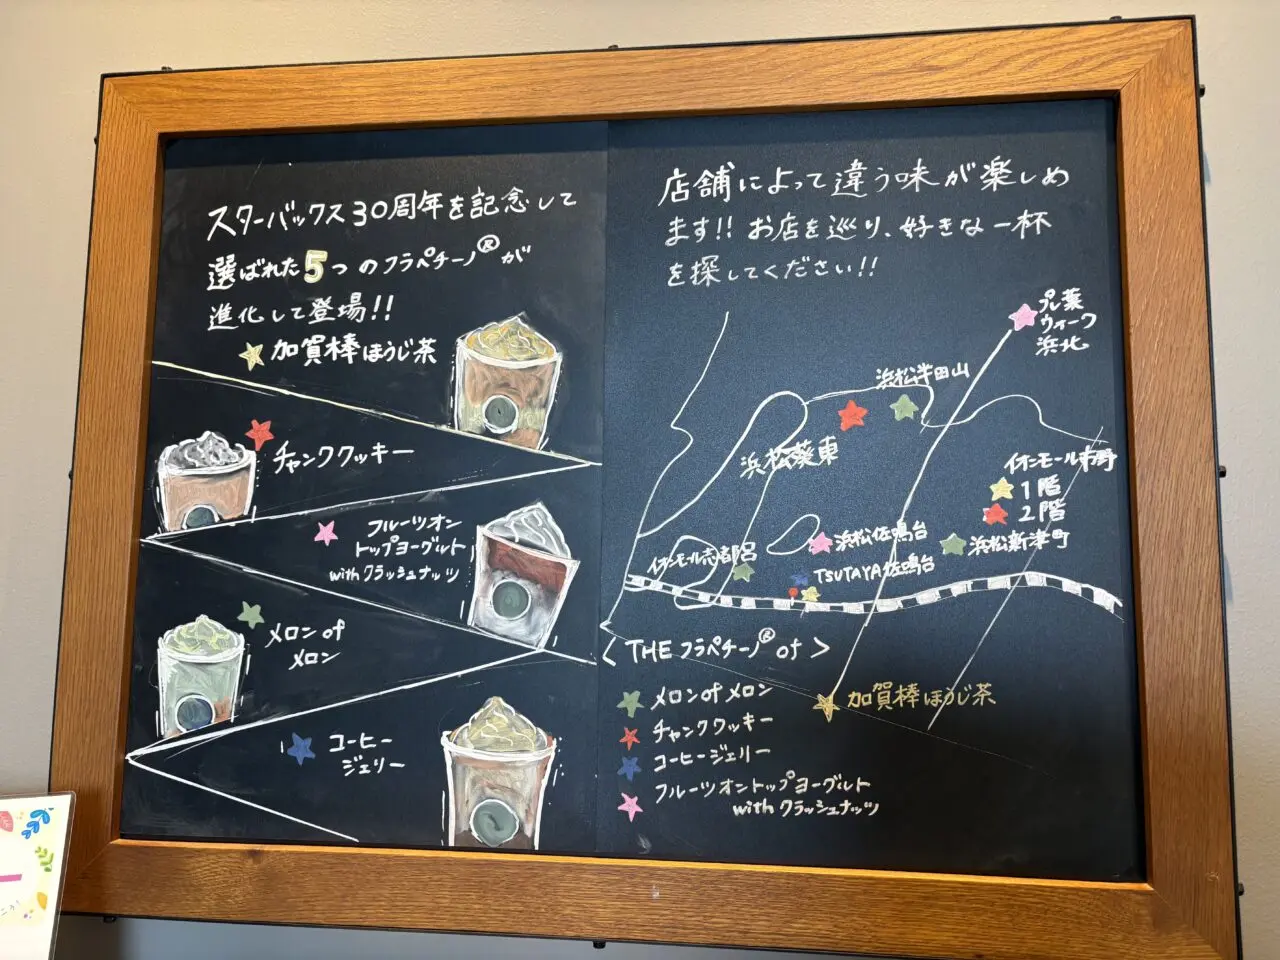 スターバックス30周年を記念して
選ばれた5つのフラペチーノ®が
進化して登場!!
加賀棒ほうじ茶
チャンククッキー
フルーツオン
トップヨーグルト
withクラッシュナッツ
メロンof
メロン
コーヒー
ジェリー
店舗によって違う味が楽しめ
ます!! お店を巡り、好きな一杯
を探してください!!
プレ葉
ウォーク
浜北
浜松半田山
浜松葵東
イオンモール市野
1階
2階
浜松佐鳴台
浜松新津町
イオンモール志都呂
TSUTAYA佐鳴台
< THE フラペチーノ® of >
メロンofメロン
加賀棒ほうじ茶
チャンククッキー
コーヒージェリー
フルーツオントップヨーグルト
withクラッシュナッツ